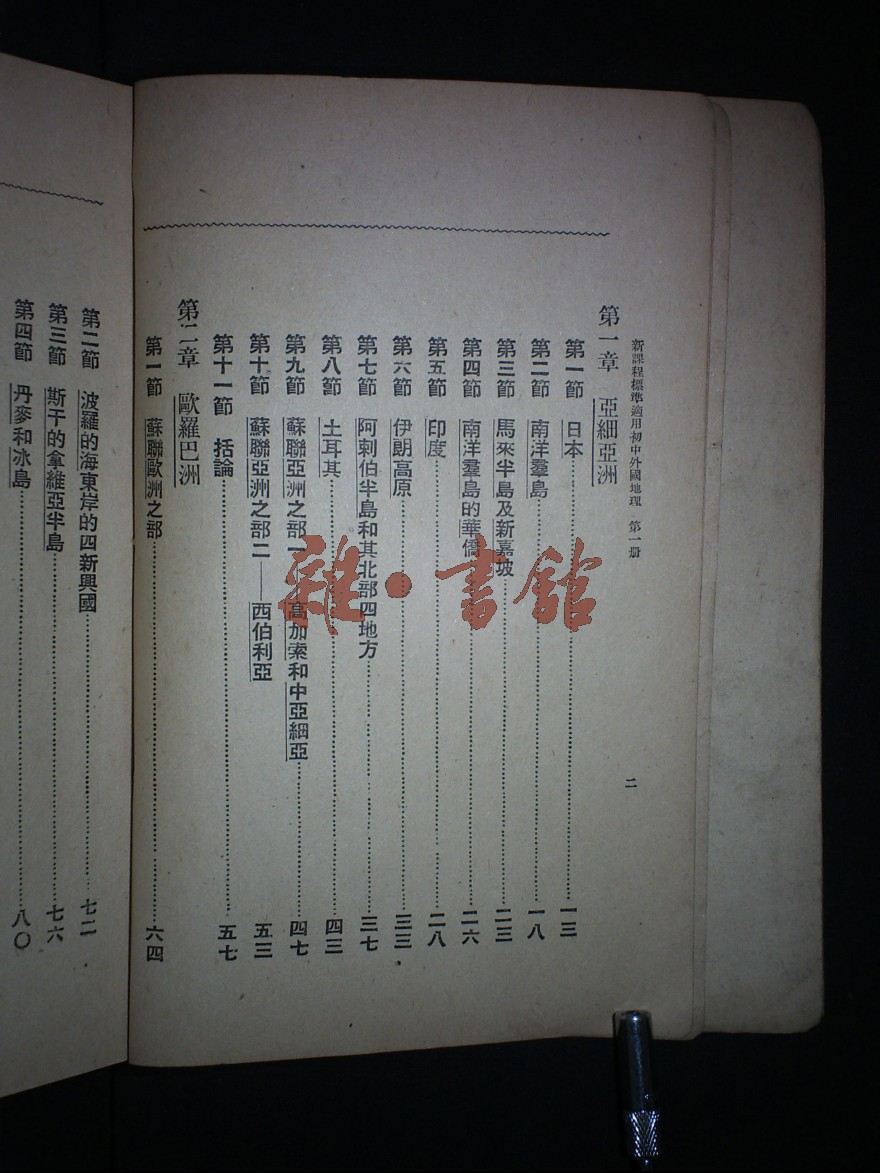 新課程標準適用初中外國地理　第一册
二
第一章　亞細亞洲
第一節　日本……一三
第二節　南洋羣島……一八
第三節　馬來半島及新嘉坡……二三
第四節　南洋羣島的華僑……二六
第五節　印度……二八
第六節　伊朗高原……三三
第七節　阿剌伯半島和其北部四地方……三七
第八節　土耳其……四三
第九節　蘇聯亞洲之部一——高加索和中亞細亞……四七
第十節　蘇聯亞洲之部二——西伯利亞……五三
第十一節　括論……五七
第二章　歐羅巴洲
第一節　蘇聯歐洲之部……六四
第二節　波羅的海東岸的四新興國……七二
第三節　斯干的拿維亞半島……七六
第四節　丹麥和冰島……八〇
雜·書館